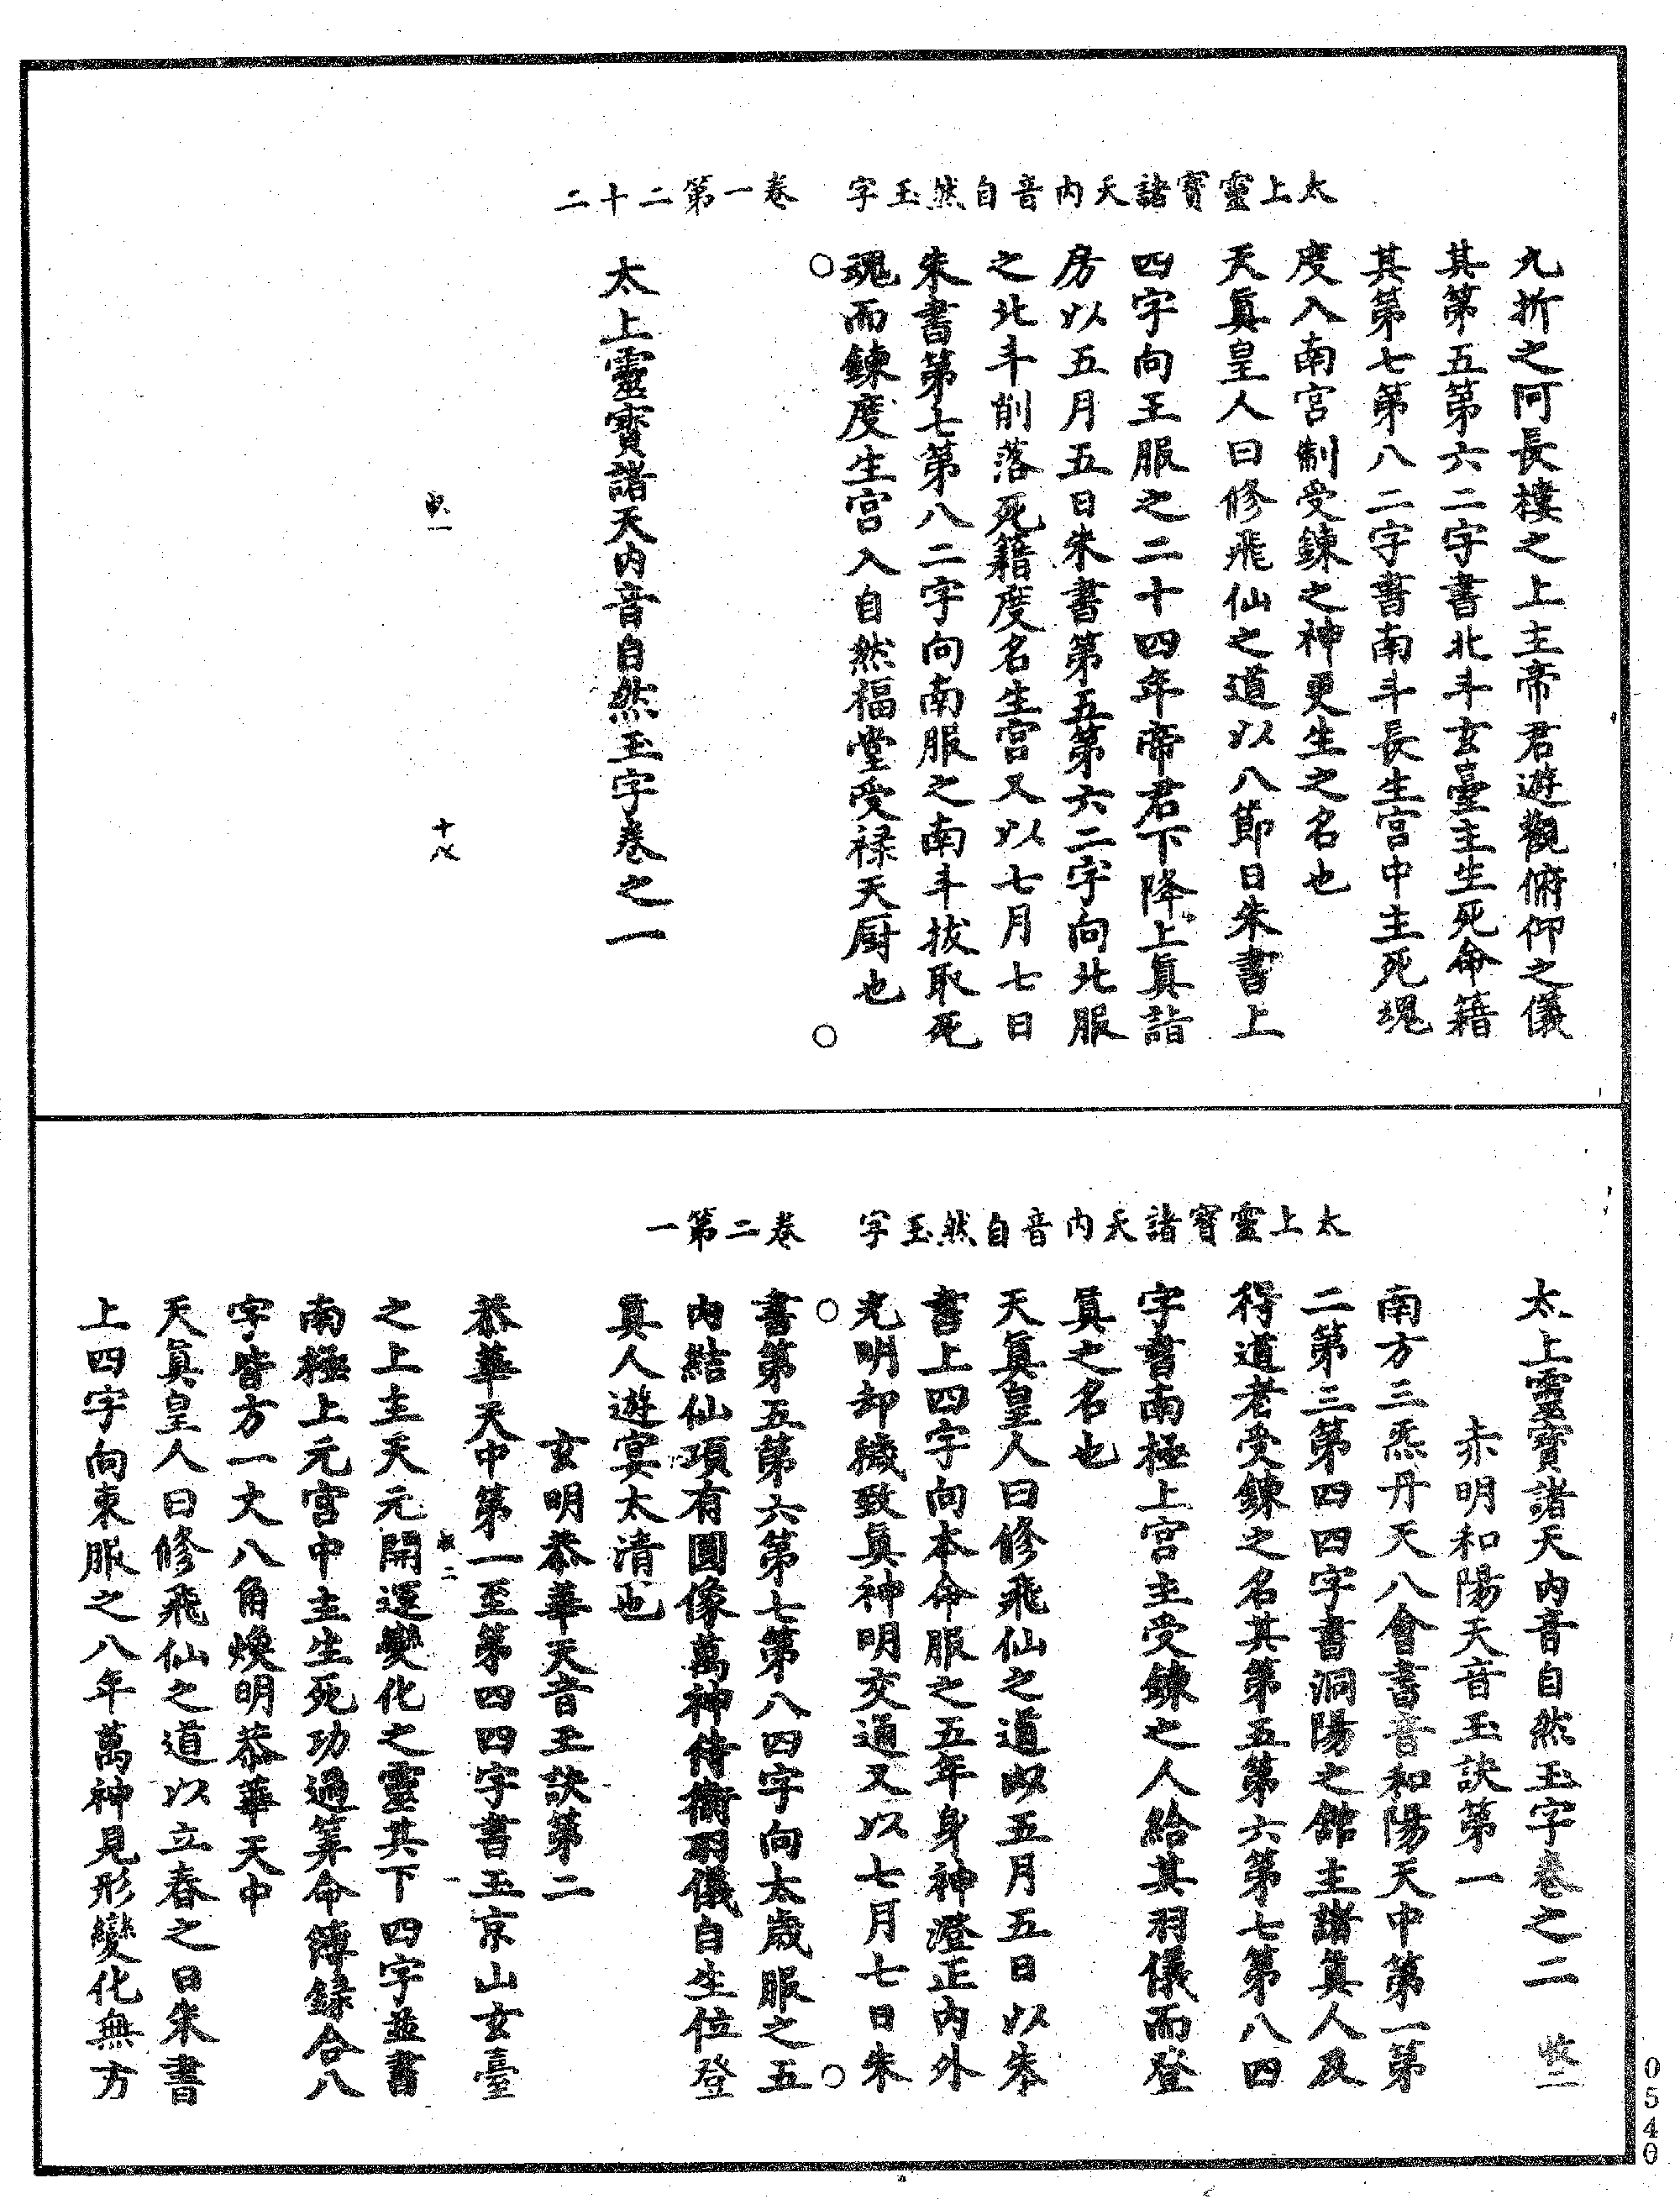 太上靈寶諸天內音自然玉字　卷一第二十二
九折之阿長樓之上主帝君遊觀俯仰之儀
其第五第六二字書北斗玄臺主生死命籍
其第七第八二字書南斗長生宮中主死魂
度入南宮制受鍊之神更生之名也
天真皇人曰修飛仙之道以八節日朱書上
四字向王服之二十四年帝君下降上真詣
房以五月五日朱書第五第六二字向北服
之北斗削落死籍度名生宮又以七月七日
朱書第七第八二字向南服之南斗拔取死
魂而鍊度生宮入自然福堂受祿天厨也
太上靈寶諸天內音自然玉字卷之一
十八
太上靈寶諸天內音自然玉字　卷二第一
太上靈寶諸天內音自然玉字卷之二
赤明和陽天音玉訣第一
南方三炁丹天八會書音和陽天中第一第
二第三第四四字書洞陽之館主諸真人及
得道老受鍊之名其第五第六第七第八四
字書南極上宮主受鍊之人給其羽儀而登
真之名也
天真皇人曰修飛仙之道以五月五日以朱
書上四字向本命服之五年身神澄正內外
光明却穢致真神明交通又以七月七日朱
書第五第六第七第八四字向太歲服之五
內結仙項有圓像萬神侍衛羽儀自生位登
真人遊宴太清也
玄明恭華天音玉訣第二
恭華天中第一至第四四字書玉京山玄臺
二　一
之上主天元開運變化之靈其下四字並書
南極上元宮中主生死功過筭命簿錄合八
字皆方一丈八角煥明恭華天中
天真皇人曰修飛仙之道以立春之日朱書
上四字向東服之八年萬神見形變化無方
0540